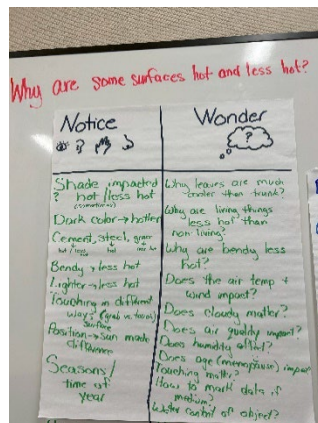 Why are some surfaces hot and less hot?
Notice
Shade impacted
? hot/less hot
Dark color → hotter
Cement, steel, grass
hot
Bendy → less hot
Lighter → less hot
Touching in different
ways (grab vs. touch)
surface
Position → sun made
difference
Seasons/
time of
year
Wonder
?
Why leaves are much
cooler than trunk?
Why are living things
less hot than
non living?
Why are bendy less
hot?
Does the air temp +
wind impact?
Does cloudy matter?
Does air quality impact?
Does humidity affect?
Does age (menopause) impact
Touching matter?
How to mark data if
medium?
Water control of object?